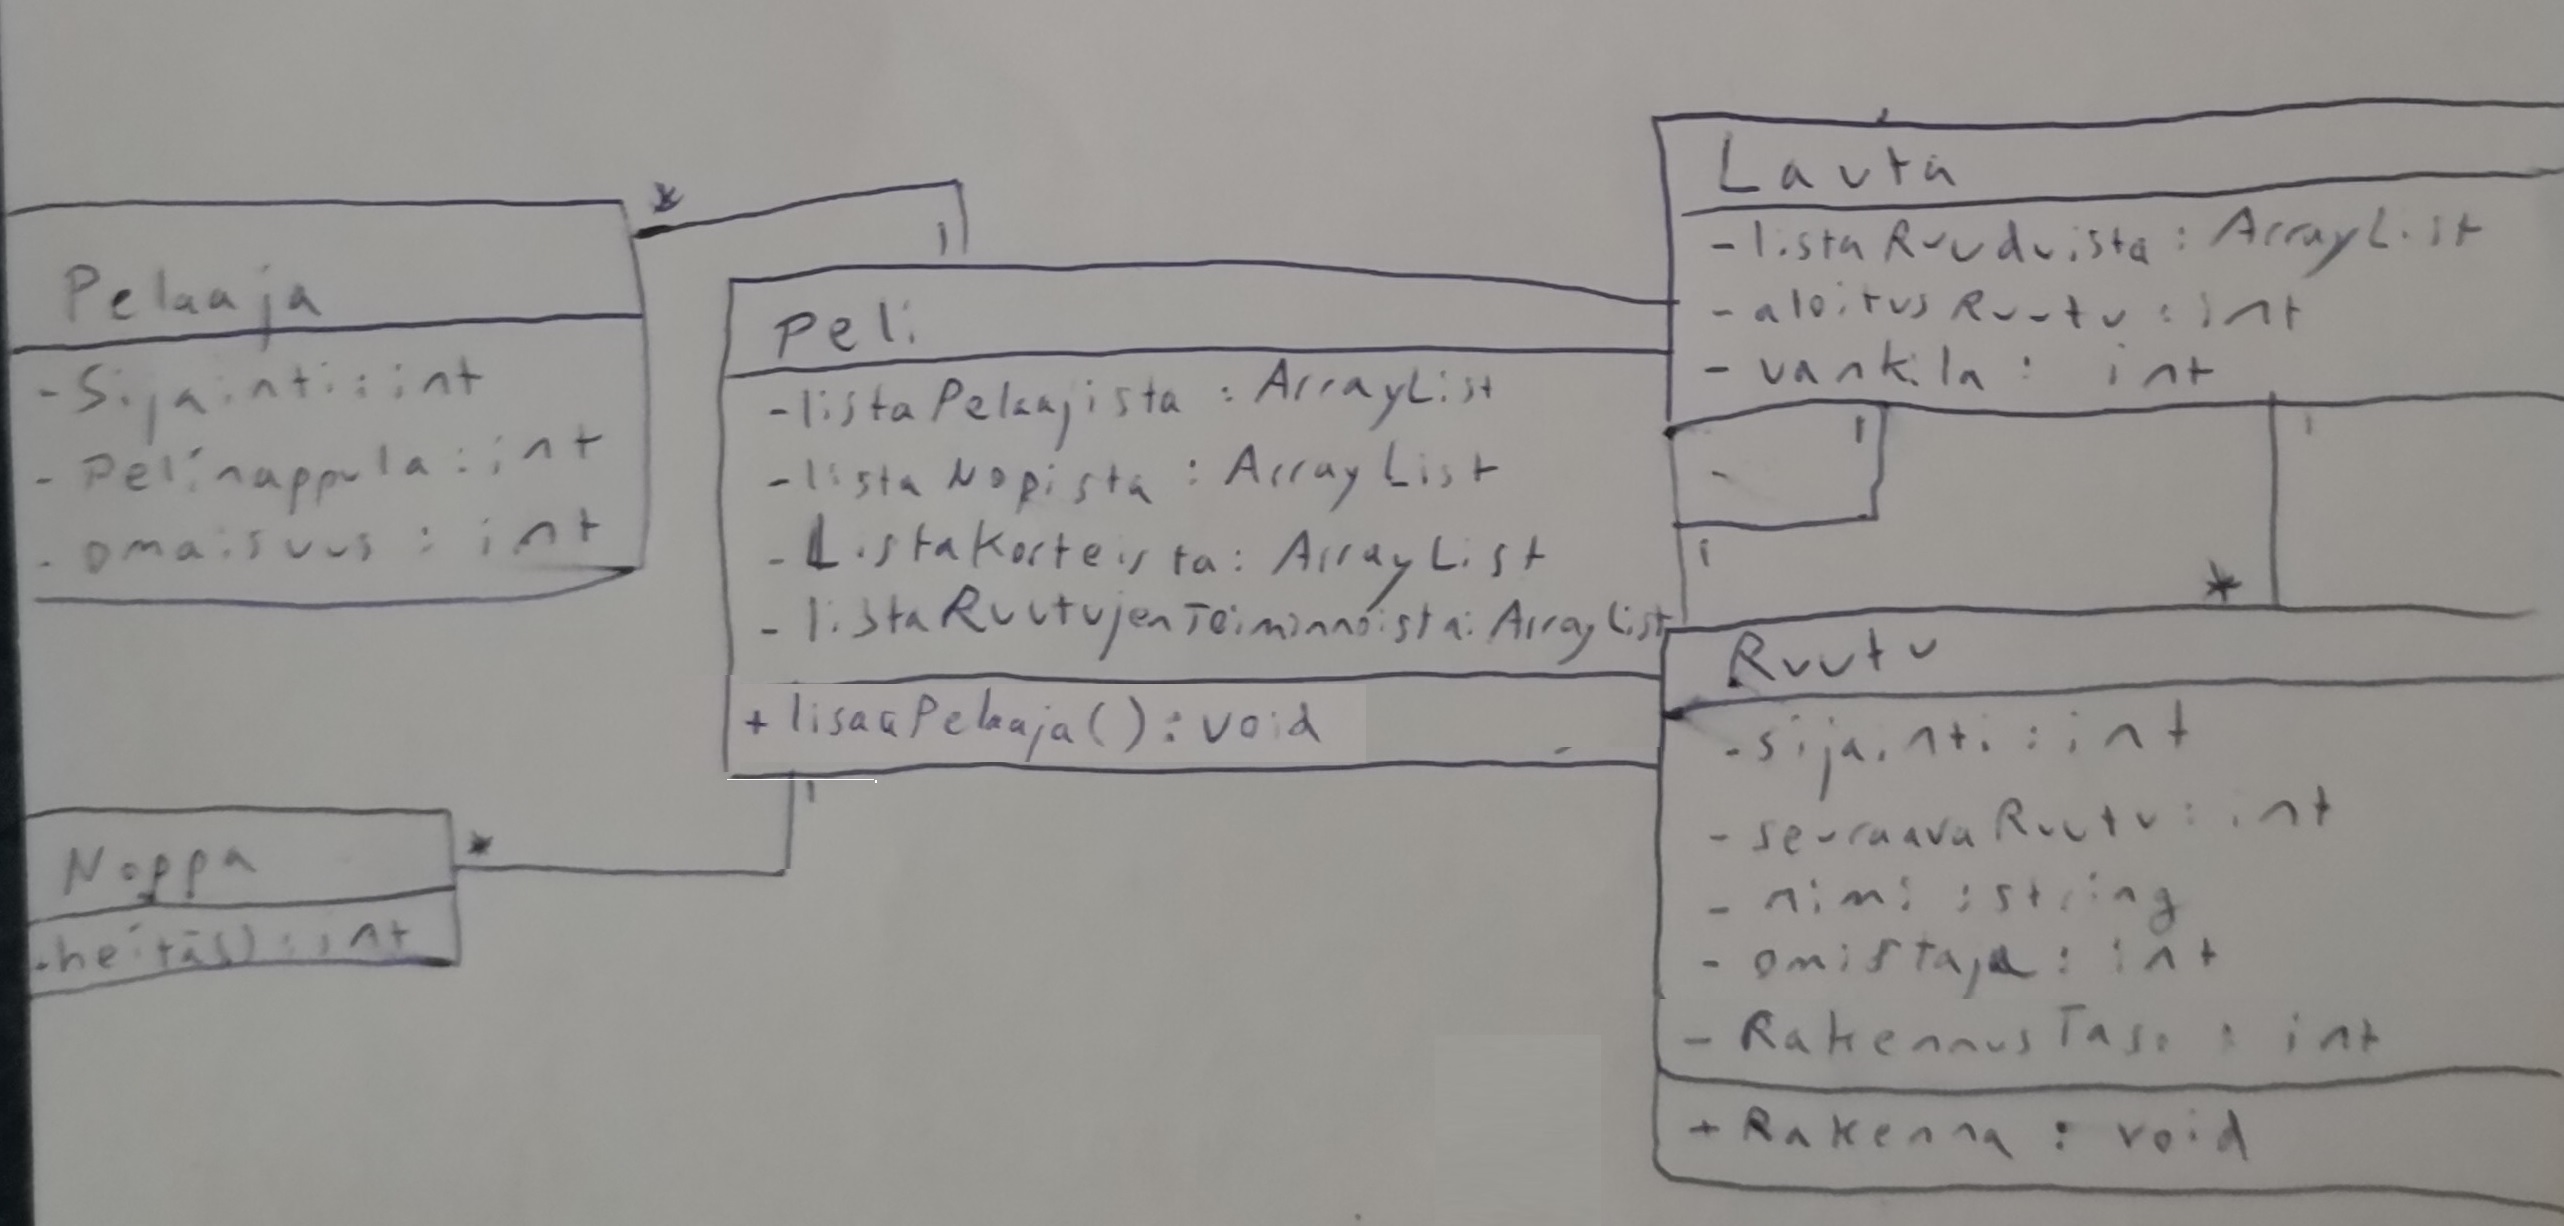 Pelaaja
- Sijainti : int
- Pelinappula : int
- omaisuus : int
*
1
Peli
- listaPelaajista : ArrayList
- listaNopista : ArrayList
- ListaKorteista : ArrayList
- listaRuutujenToiminnoista : ArrayList
+ lisaaPelaaja() : void
1
*
Noppa
- heitä() : int
Lauta
- listaRuuduista : ArrayList
- aloitusRuutu : int
- vankila : int
1
1
1
*
Ruutu
- sijainti : int
- seuraavaRuutu : int
- nimi : string
- omistaja : int
- RakennusTaso : int
+ Rakenna : void